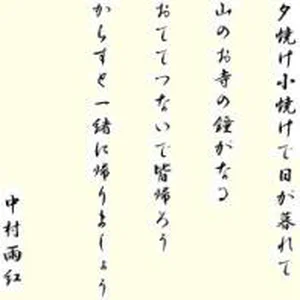 夕焼け小焼けで日が暮れて
山のお寺の鐘がなる
おててつないで皆帰ろう
からすと一緒に帰りましょう
中村雨紅